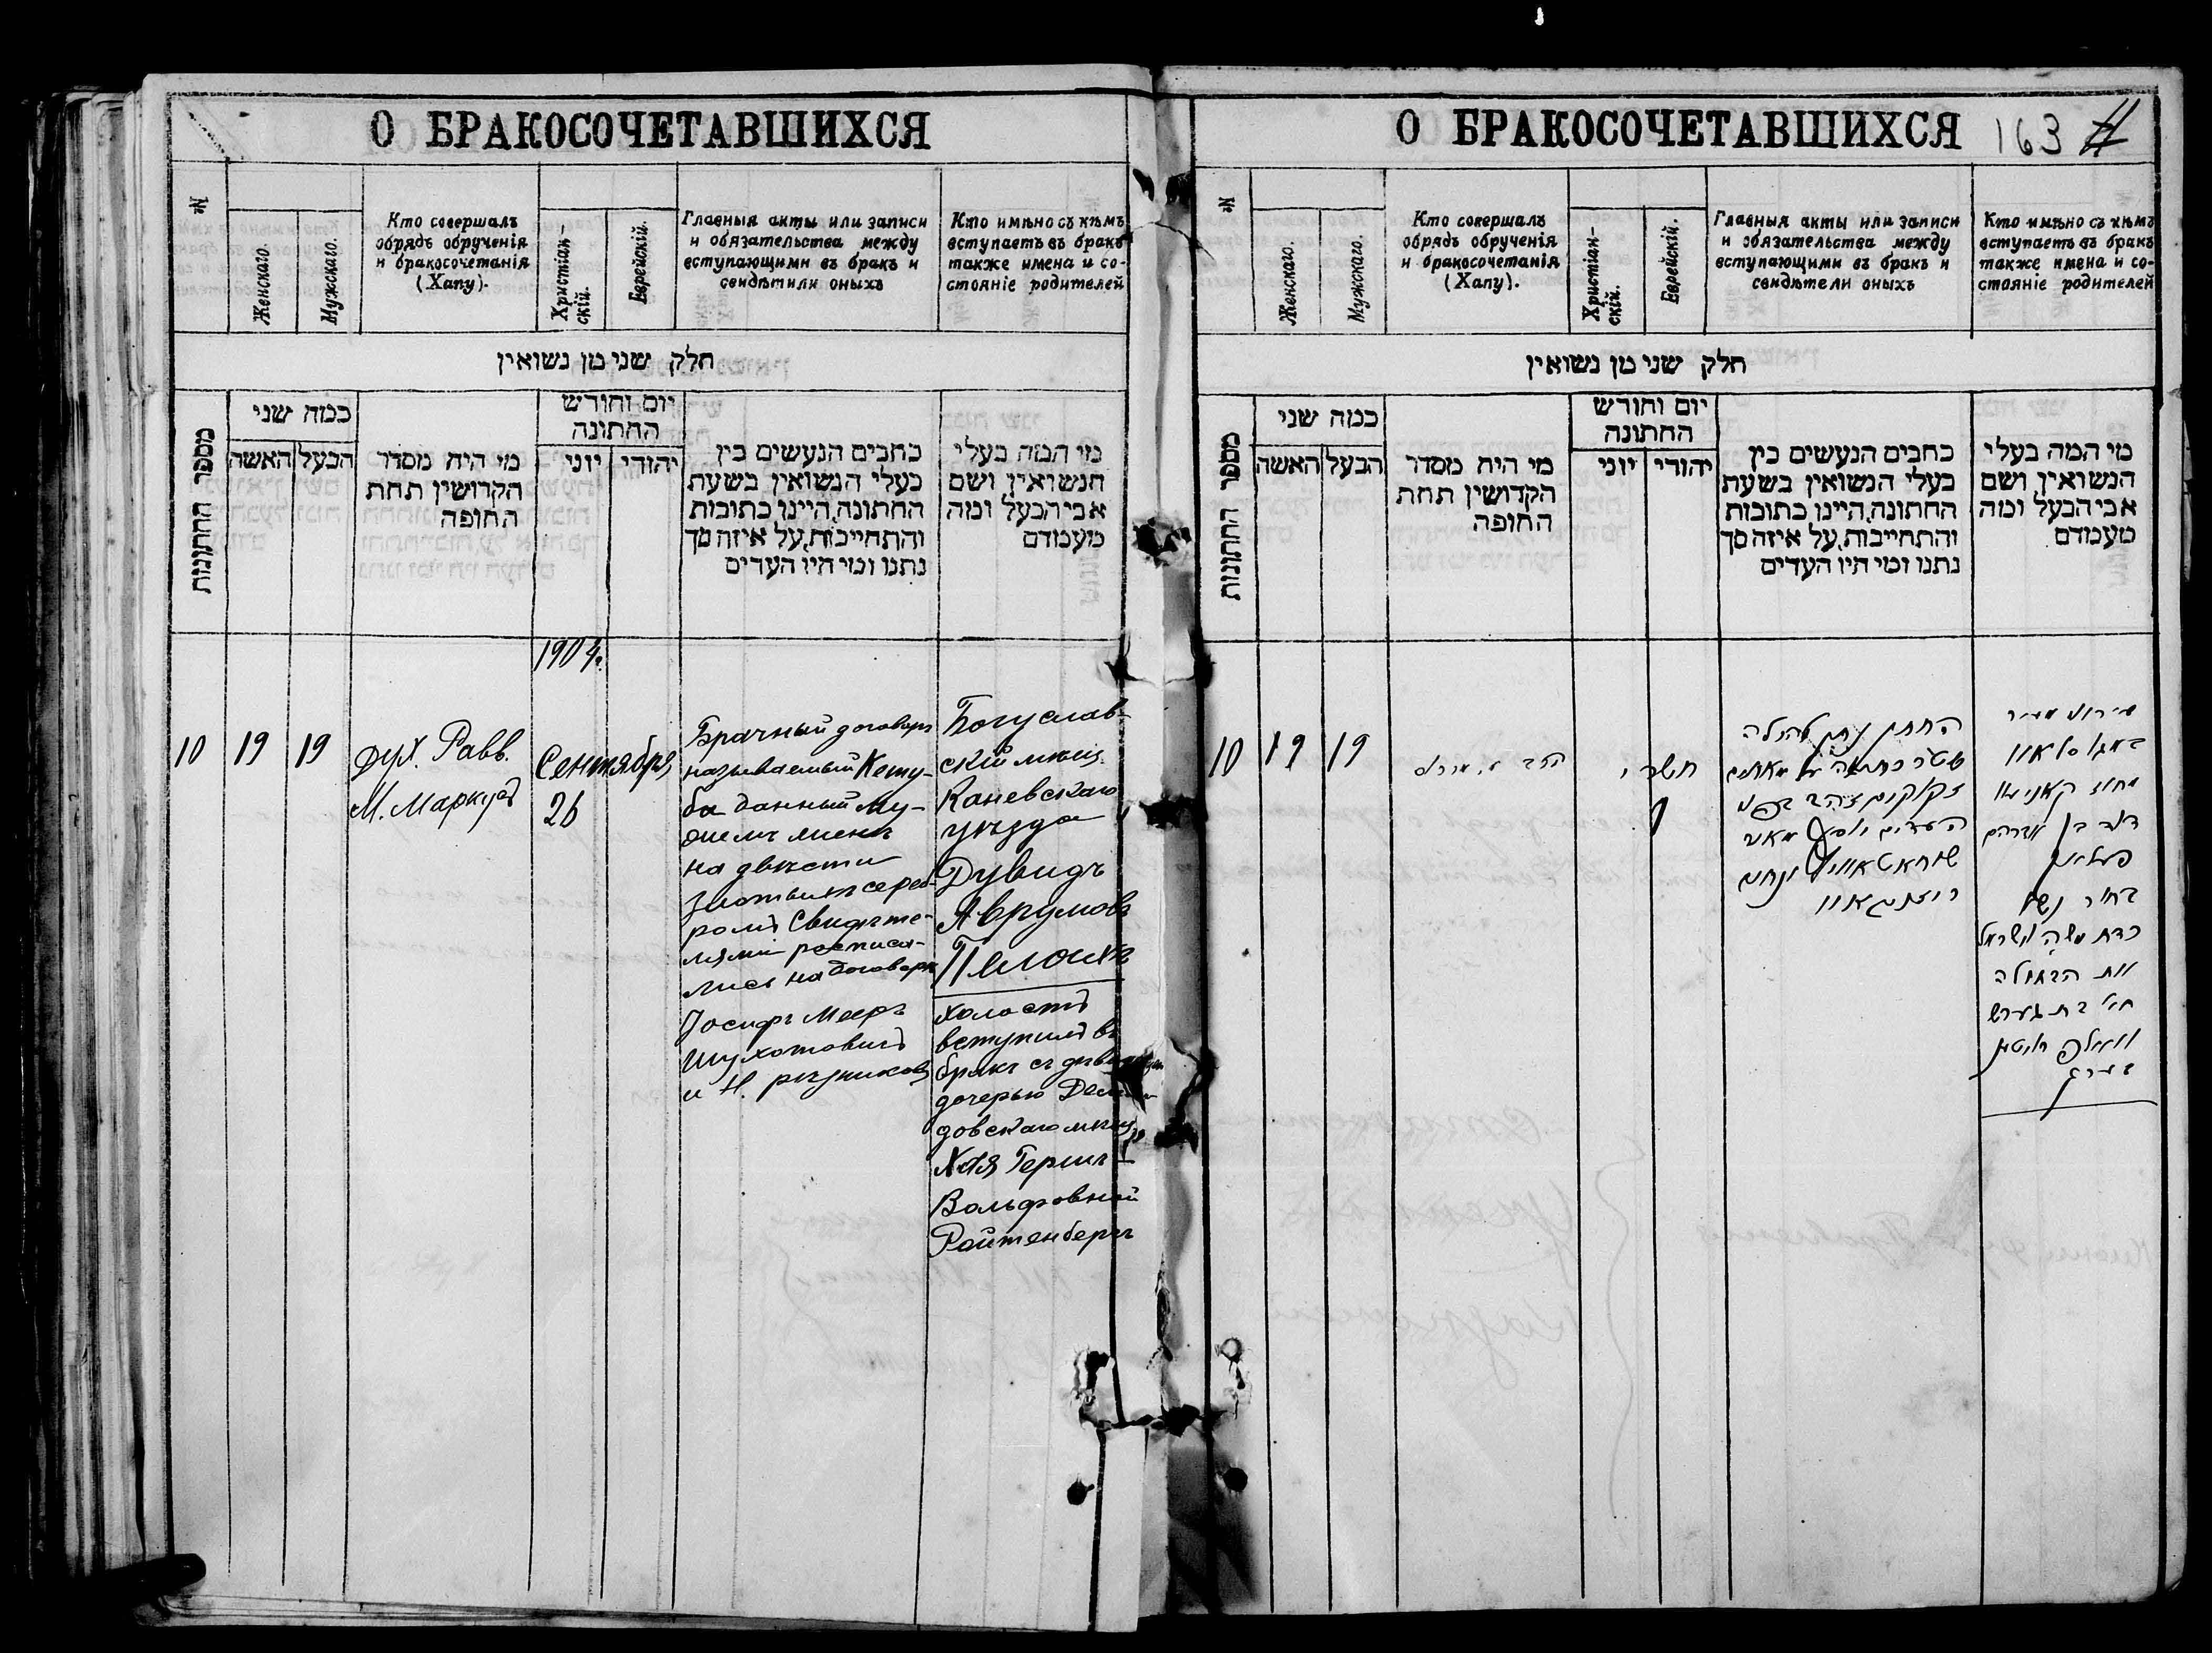 О БРАКОСОЧЕТАВШИХСЯ
№
Женскаго.
Мужскаго.
Кто совершалъ
обрядъ обрученія
и бракосочетанія
(Хапу).
Христіан-
скій.
Еврейскій.
Главныя акты или записи
и обязательства между
вступающими въ бракъ и
свидѣтили оныхъ
Кто имѣно съ кѣмъ
вступаетъ въ бракъ
также имена и со-
стояніе родителей
חלק שני מן נשואין
מספר החתונות
כמה שני
האשה
הבעל
מי היה מסדר
הקדושין תחת
החופה
יום וחורש
החתונה
יוני
יהודי
כחבים הנעשים בין
בעלי הנשואין בשעת
החתונה, היינו כתובות
והתחייבות, על איזה סך
נתנו ומי היו העדים
מי המה בעלי
הנשואין ושם
אבי הבעל ומה
מעמדם
1904 г.
10
19
19
Дух. Равв.
М. Маркусъ
Сентября
26
Брачный договоръ
называемый Кету-
ба данный му-
жемъ женѣ
на двѣсти
злотыхъ сереб-
ромъ Свидѣте-
лями росписа-
лись на договорѣ
Іосифъ Мееръ
Шухатовичъ
и Н. рѣзниковъ
Богуслав-
скій мѣщ.
Каневскаго
уѣзда
Дувидъ
Аврумовъ
холостъ
вступилъ въ
бракъ съ
дочерью
довскаго мѣщ.
Хая Гершъ-
Вольфовной
Ройтенбергъ
О БРАКОСОЧЕТАВШИХСЯ
163
№
Женскаго.
Мужскаго.
Кто совершалъ
обрядъ обрученія
и бракосочетанія
(Хапу).
Христіан-
скій.
Еврейскій.
Главныя акты или записи
и обязательства между
вступающими въ бракъ и
свидѣтели оныхъ
Кто имѣно съ кѣмъ
вступаетъ въ бракъ
также имена и со-
стояніе родителей
חלק שני מן נשואין
מספר החתונות
כמה שני
האשה
הבעל
מי היה מסדר
הקדושין תחת
החופה
יום וחורש
החתונה
יוני
יהודי
כחבים הנעשים בין
בעלי הנשואין בשעת
החתונה, היינו כתובות
והתחייבות, על איזה סך
נתנו ומי היו העדים
מי המה בעלי
הנשואין ושם
אבי הבעל ומה
מעמדם
10
19
19
הרב
תשרי
החתן נתן להכלה
שטר כתובה על מאתים
זקוקים
העדים יוסף מאיר
דוד בן אברהם
בחור נשא
כדת משה וישראל
את הבתולה
חי׳ בת גערש
וואלף